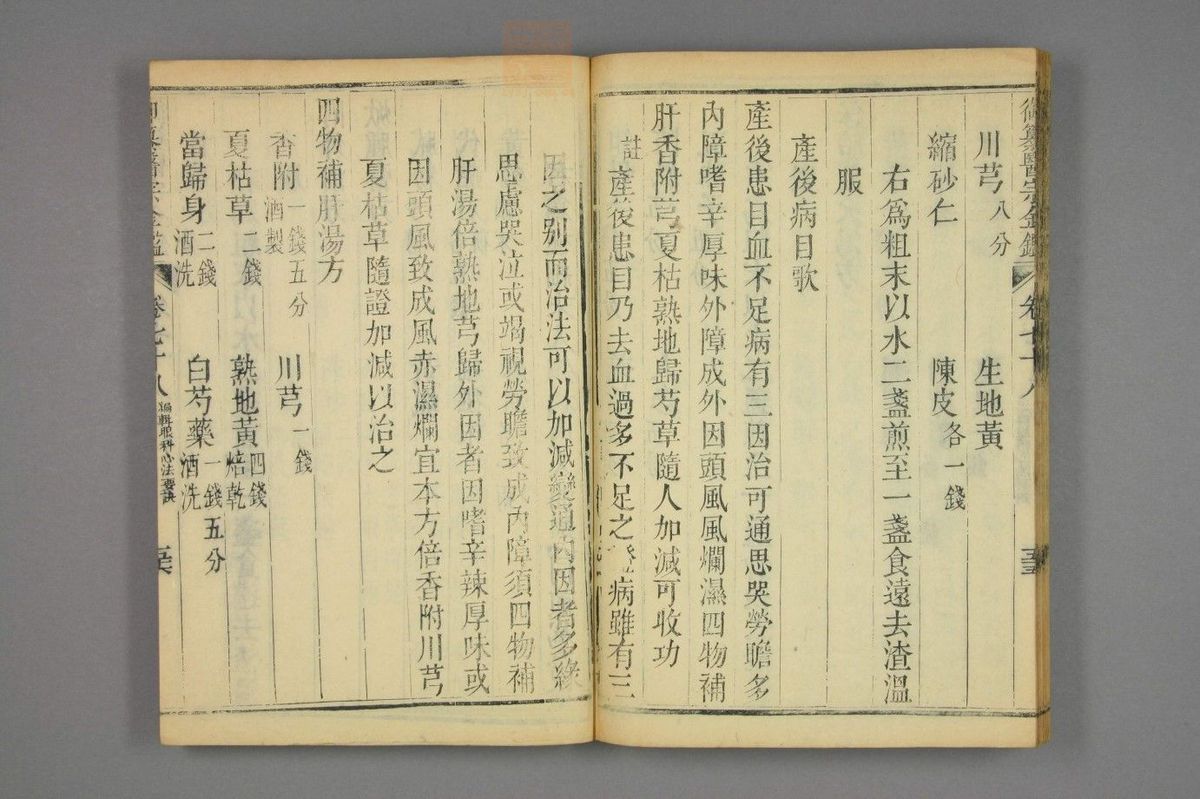 御纂醫宗金鑑 卷七十八
川芎八分 生地黃
縮砂仁 陳皮各一錢
右爲粗末以水二盞煎至一盞食遠去渣溫
服
產後病目歌
產後患目血不足病有三因治可通思哭勞瞻多
內障嗜辛厚味外障成外因頭風風爛濕四物補
肝香附芎夏枯熟地歸芍草隨人加減可收功
註產後患目乃去血過多不足之病雖有三
因之别而治法可以加減變通內因者多緣
思慮哭泣或竭視勞瞻致成內障須四物補
肝湯倍熟地芎歸外因者因嗜辛辣厚味或
因頭風致成風赤濕爛宜本方倍香附川芎
夏枯草隨證加減以治之
四物補肝湯方
香附一錢五分酒製 川芎一錢
夏枯草二錢 熟地黃四錢焙乾
當歸身二錢酒洗 白芍藥一錢五分酒洗
御纂醫宗金鑑 卷七十八 編輯眼科心法要訣